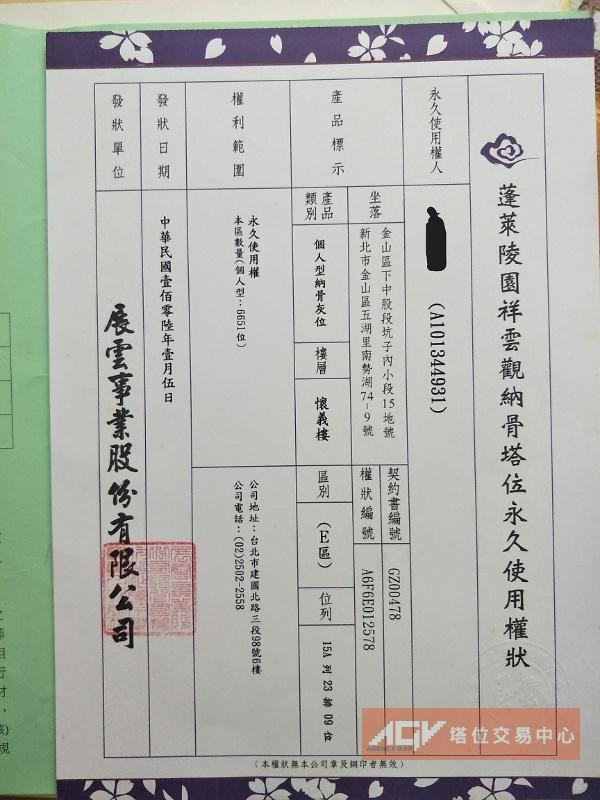 蓬萊陵園祥雲觀納骨塔位永久使用權狀
永久使用權人
(A101344931)
產品標示
坐落
金山區下中股段坑子內小段15地號
新北市金山區五湖里南勢湖74-9號
契約書編號
GZ00478
權狀編號
A6F6E012578
產品類別
個人型納骨灰位
樓層
懷義樓
區別
(E區)
位列
15A 列 23 排 09 位
權利範圍
永久使用權
本區數量(個人型：6651位)
公司地址：台北市建國北路三段98號6樓
公司電話：(02)2502-2558
發狀日期
中華民國壹佰零陸年壹月伍日
發狀單位
展雲事業股份有限公司
(本權狀無本公司章及鋼印者無效)
塔位交易中心